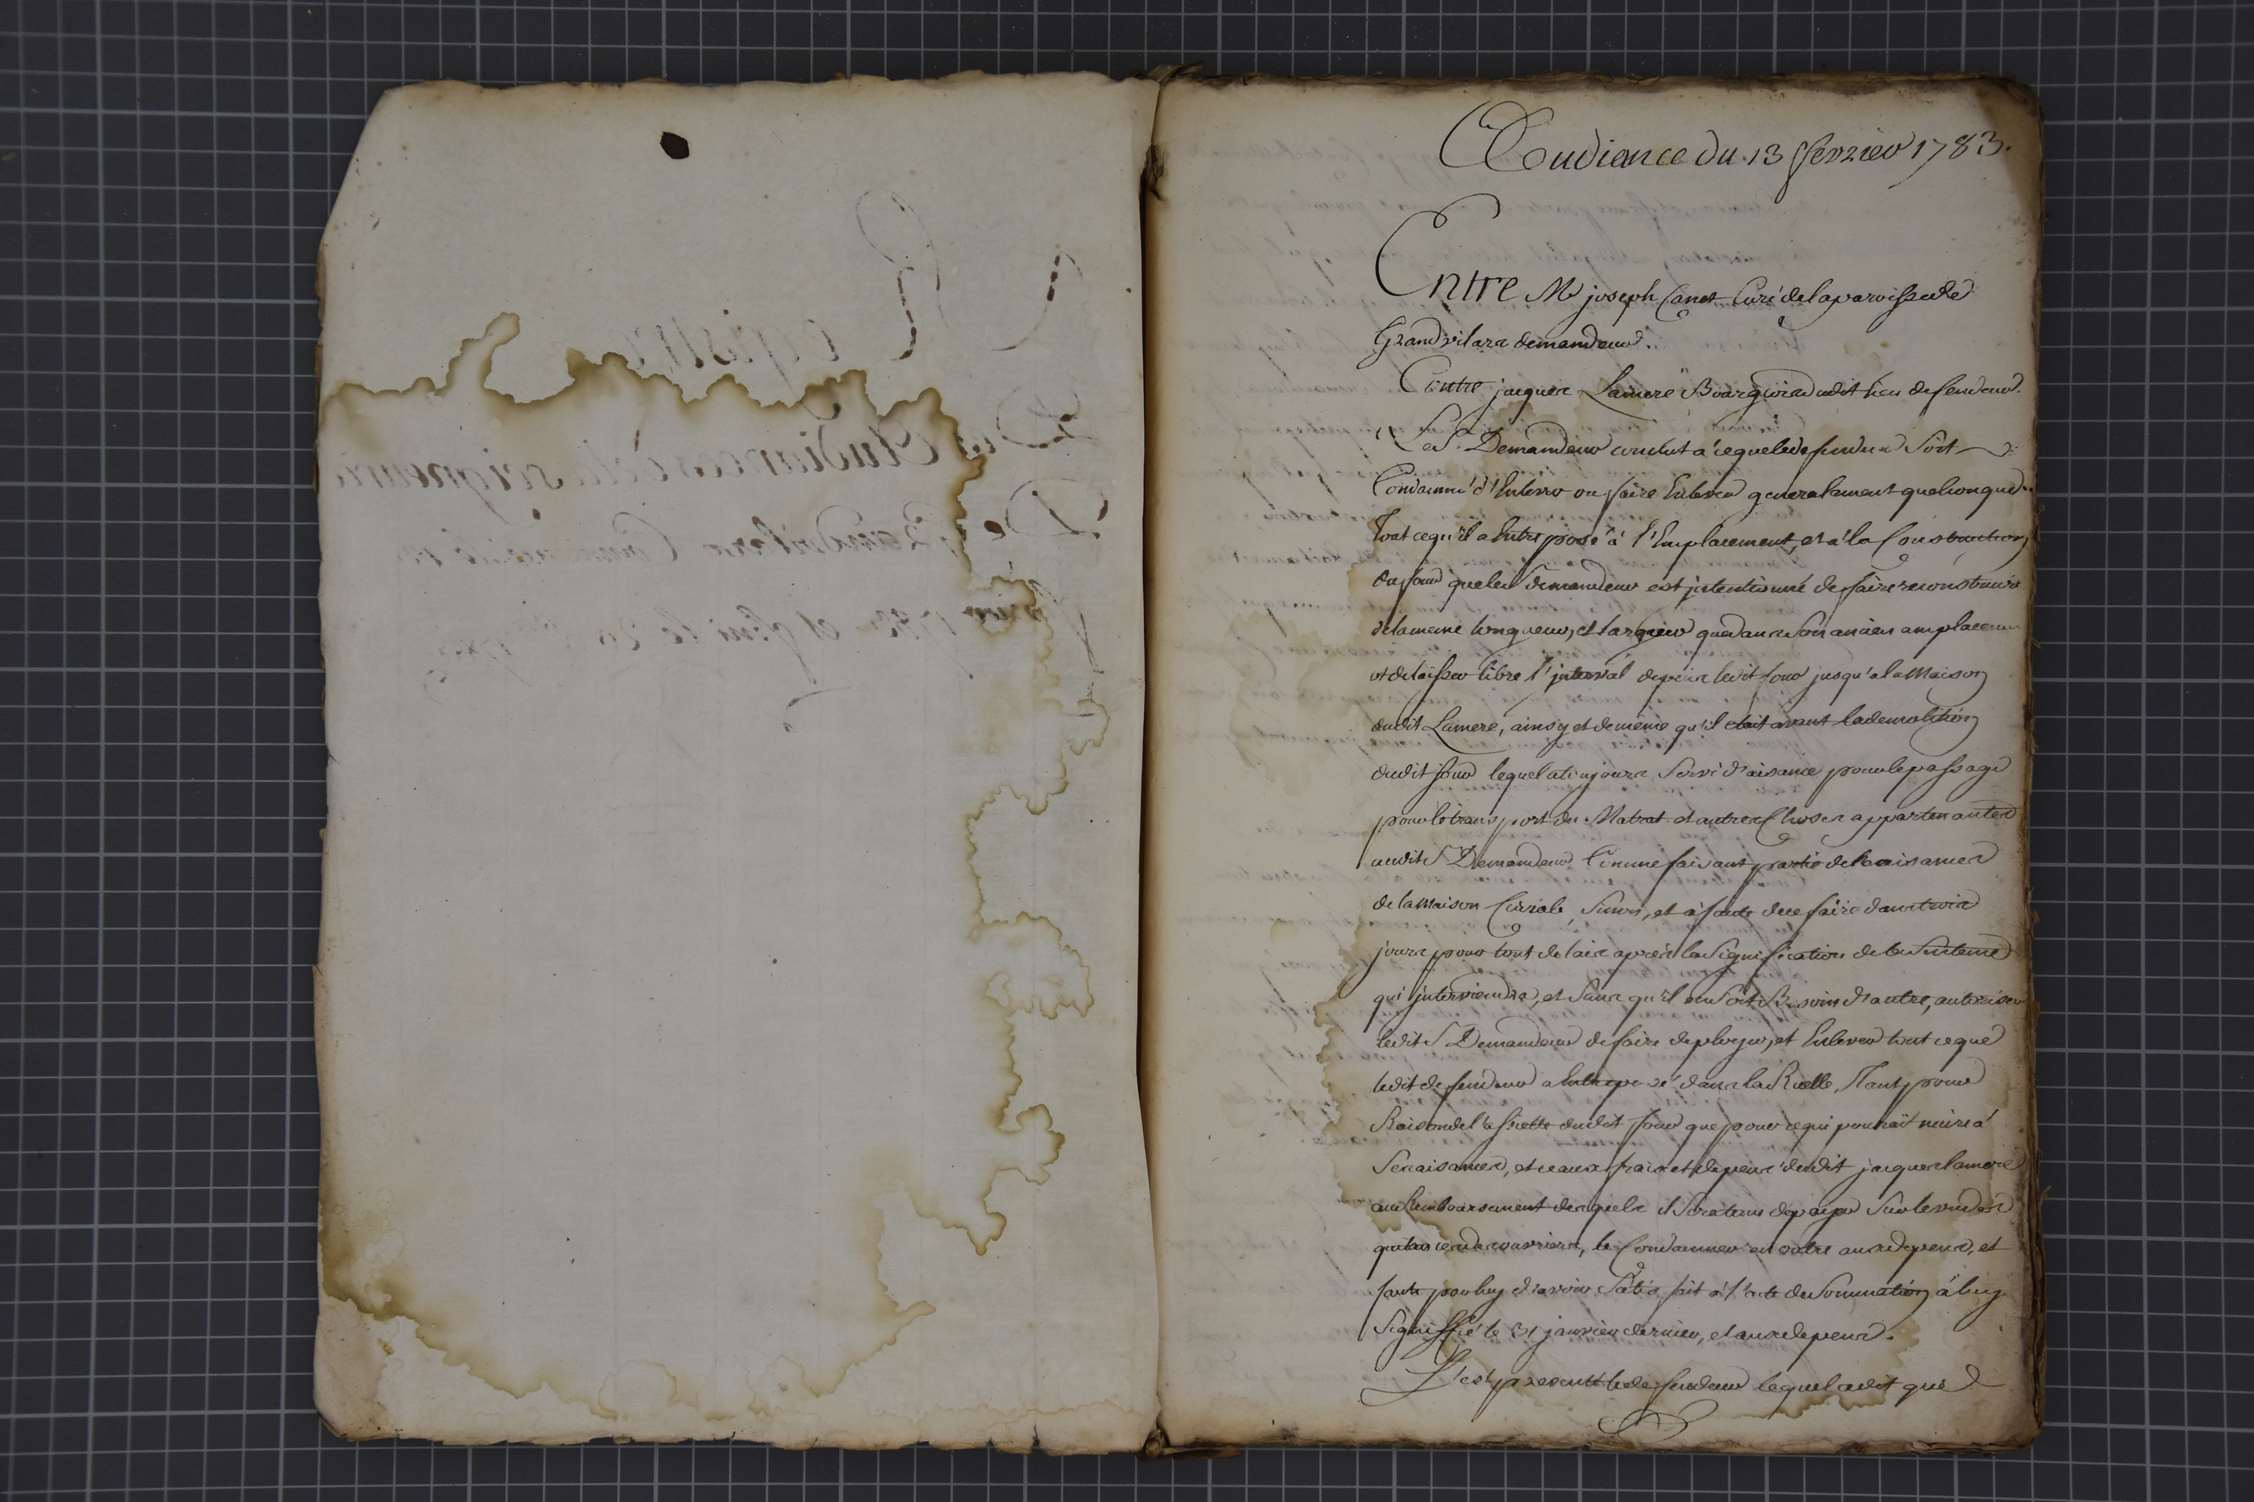 Audiance du 13 fevrier 1783.
Entre Mr joseph Canet Curé de la paroisse de
Grandvilara demandeur.
Contre jacques Lamere Bourgois dudit lieu defendeur.
Le S. Demandeur conclut a ce que le defendeur Soit
Condamné d'Enlever ou faire Enlever generalement quelconque
Tout ce qu'il a Entreposé à l'Emplacement, et a la Construction
du four que led demandeur est jntentionné de faire reconstruire
de la meme longueur, et largeur que dans son ancien amplacem
et de laisser libre l'jnterval depuis ledit four jusqu'a la Maison
dudit Lamere, ainsy et de même qu'il etait avant la demolition
dudit four lequel a toujours Servi d'aisance pour le passage
pour le transport du et autres Choses appartenantes
audit S Demandeur Comme faisant partie des aisances
de la Maison Curiale, et à faute de ce faire dans trois
jours pour tout delais après la Signification de la Sentence
qui jnterviendra, et Sans qu'il en Soit Besoin d'autre, autoriser
ledit S Demandeur de faire et Enlever tout ce que
ledit defendeur a Entreposé dans la Ruelle, Tant pour
Raison de l'assiette dudit four que pour ce qui pourrait nuire à
Ses aisances, et ce aux frais et depens dudit jacques lamere
au Remboursement desquels il Sera tenu de payer Sur le vu des
quittances des ouvriers, le Condamner en outre aux depens, et
faute par luy d'avoir Satisfait à l'acte de Sommation à luy
Signiffié le 31 janvier dernier, et aux depens.
S'est presenté le defendeur lequel a dit que